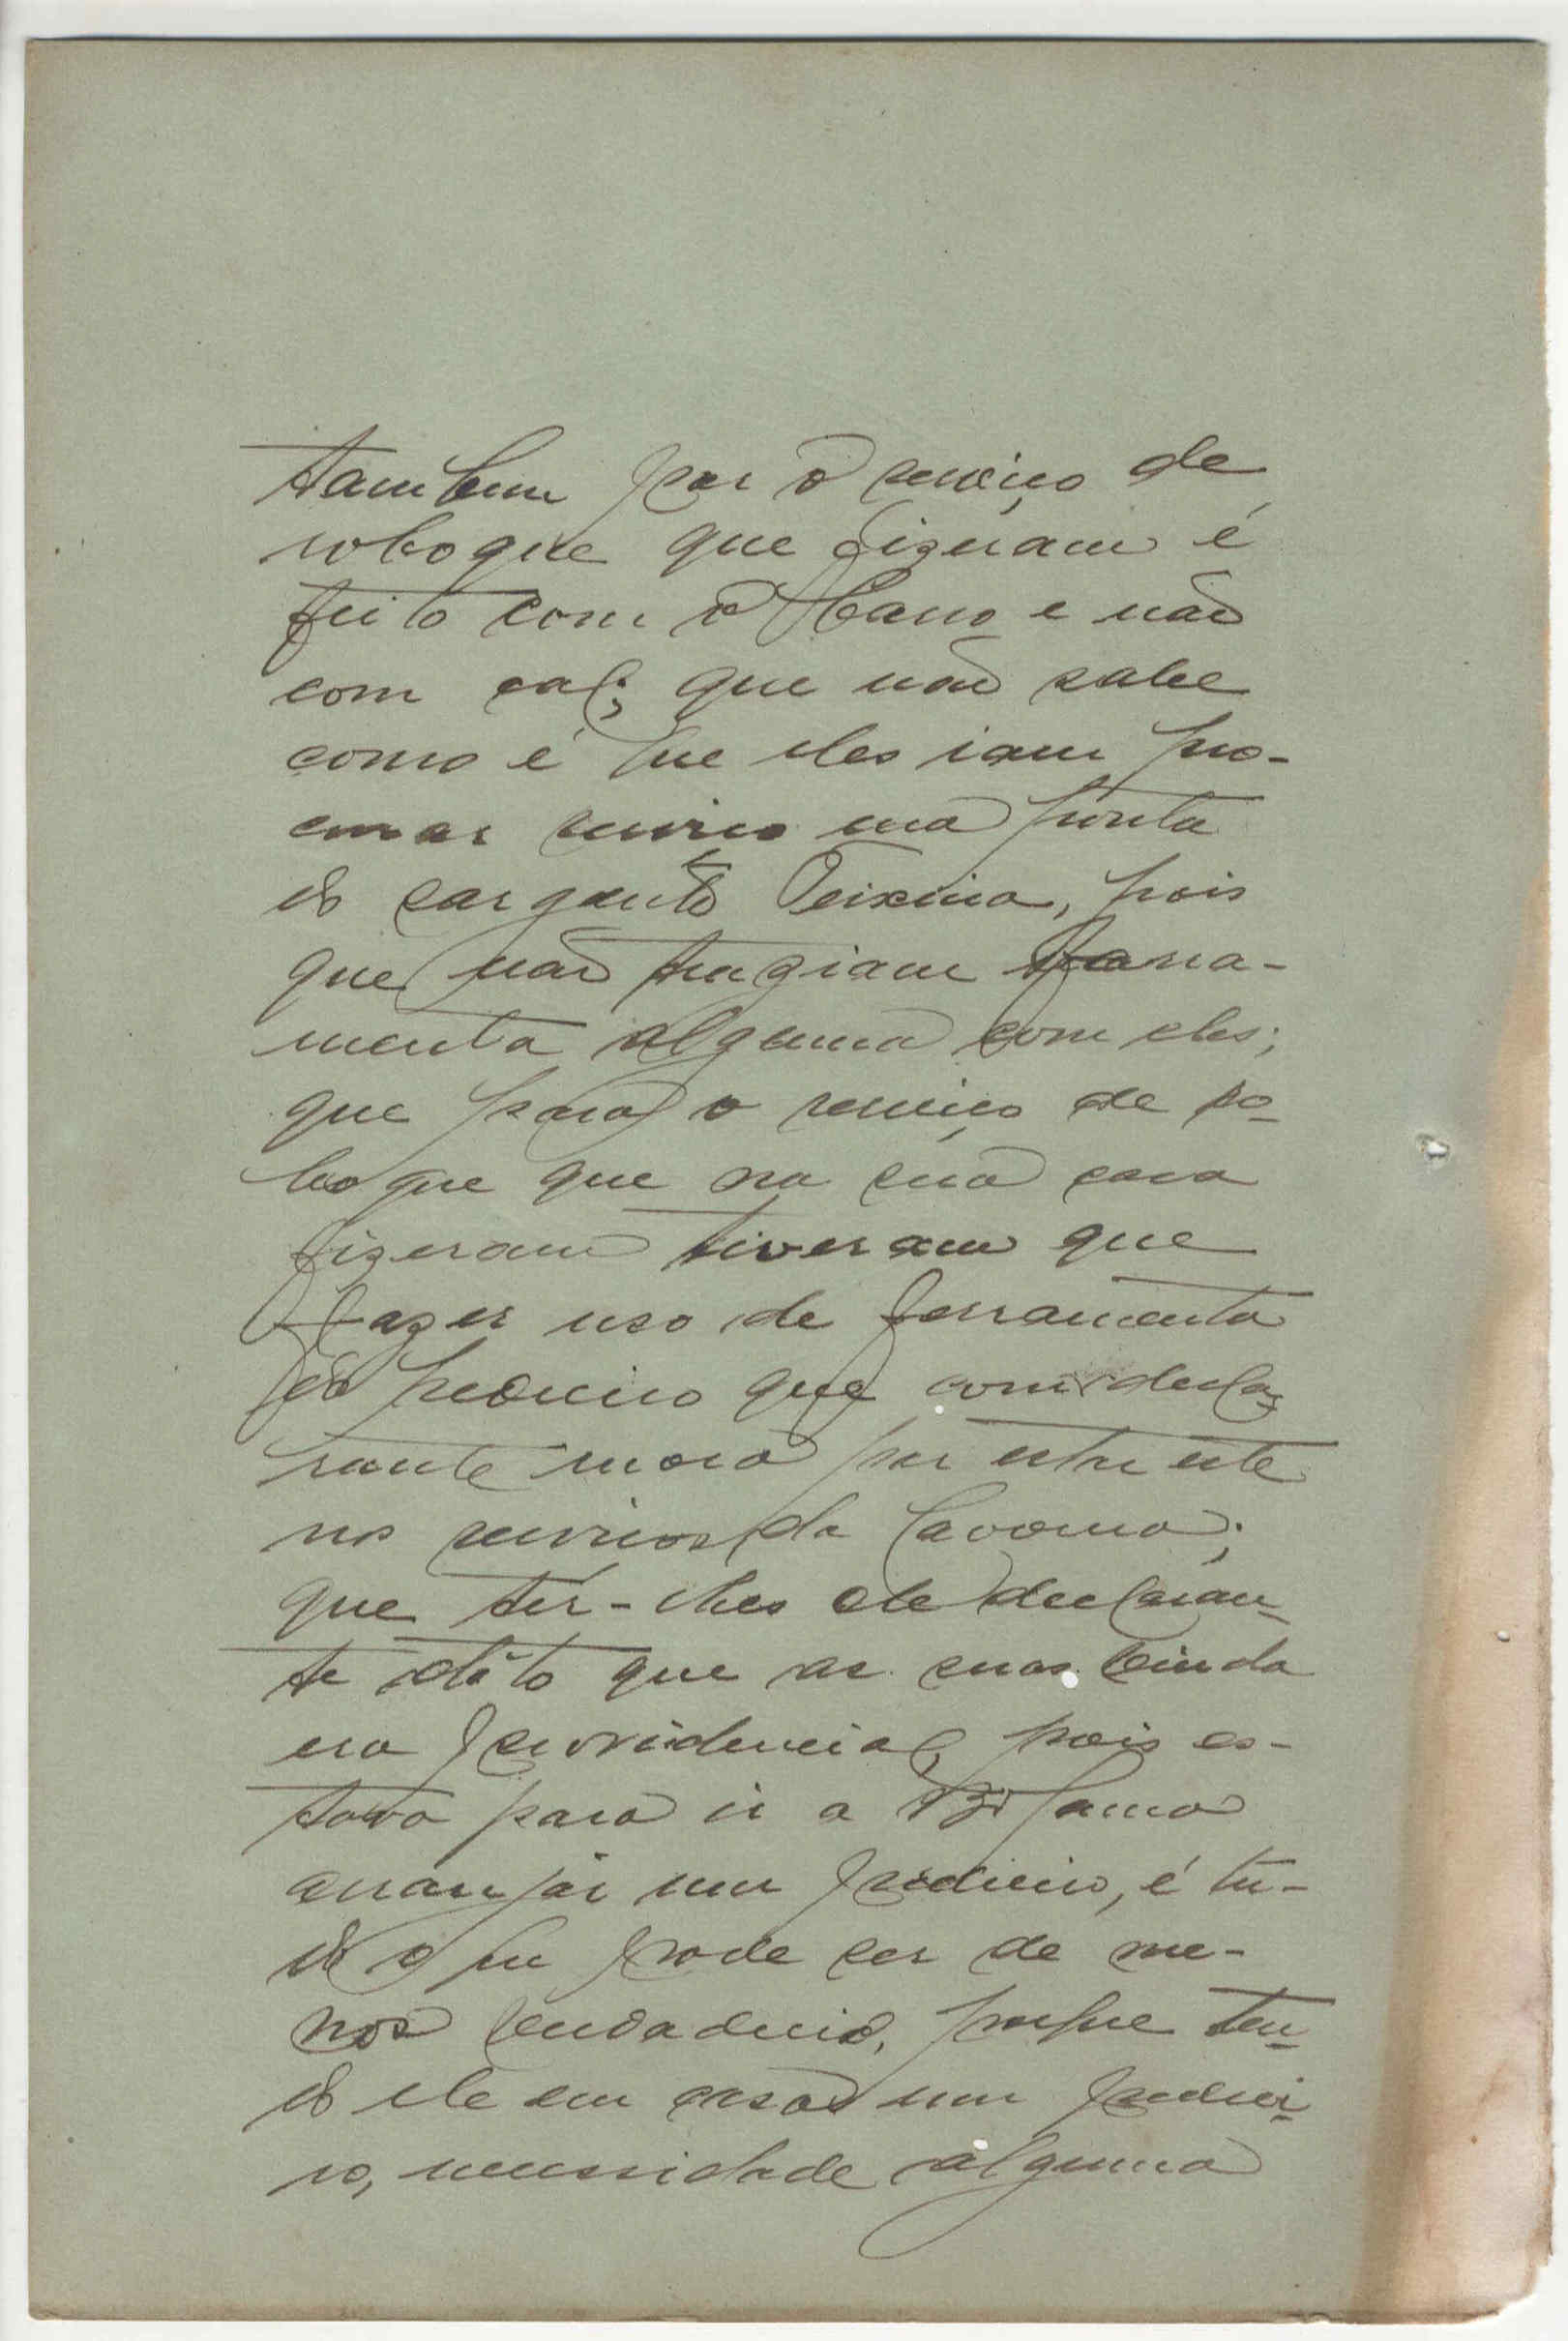 tambem por o serviço de
roboque que fizeram é
feito com o barro e não
com cal; que não sabe
como é que eles iam pro-
curar serviço na ponta
do sargento Teixeira, pois
que não traziam ferra-
menta alguma com eles;
que para o serviço de ro-
boque que na sua casa
fizeram tiveram que
fazer uso de ferramenta
do pedreiro que com o decla-
rante mora por estar este
no serviço da lavoura;
que ter-lhes ele declaran-
te dito que as suas vinda
era providencial, pois es-
tava para ir a
arranjar um pedreiro, é tu-
do o que pode ser de me-
nos verdadeiro, porque ten-
do ele em casa um pedrei-
ro, necessidade alguma